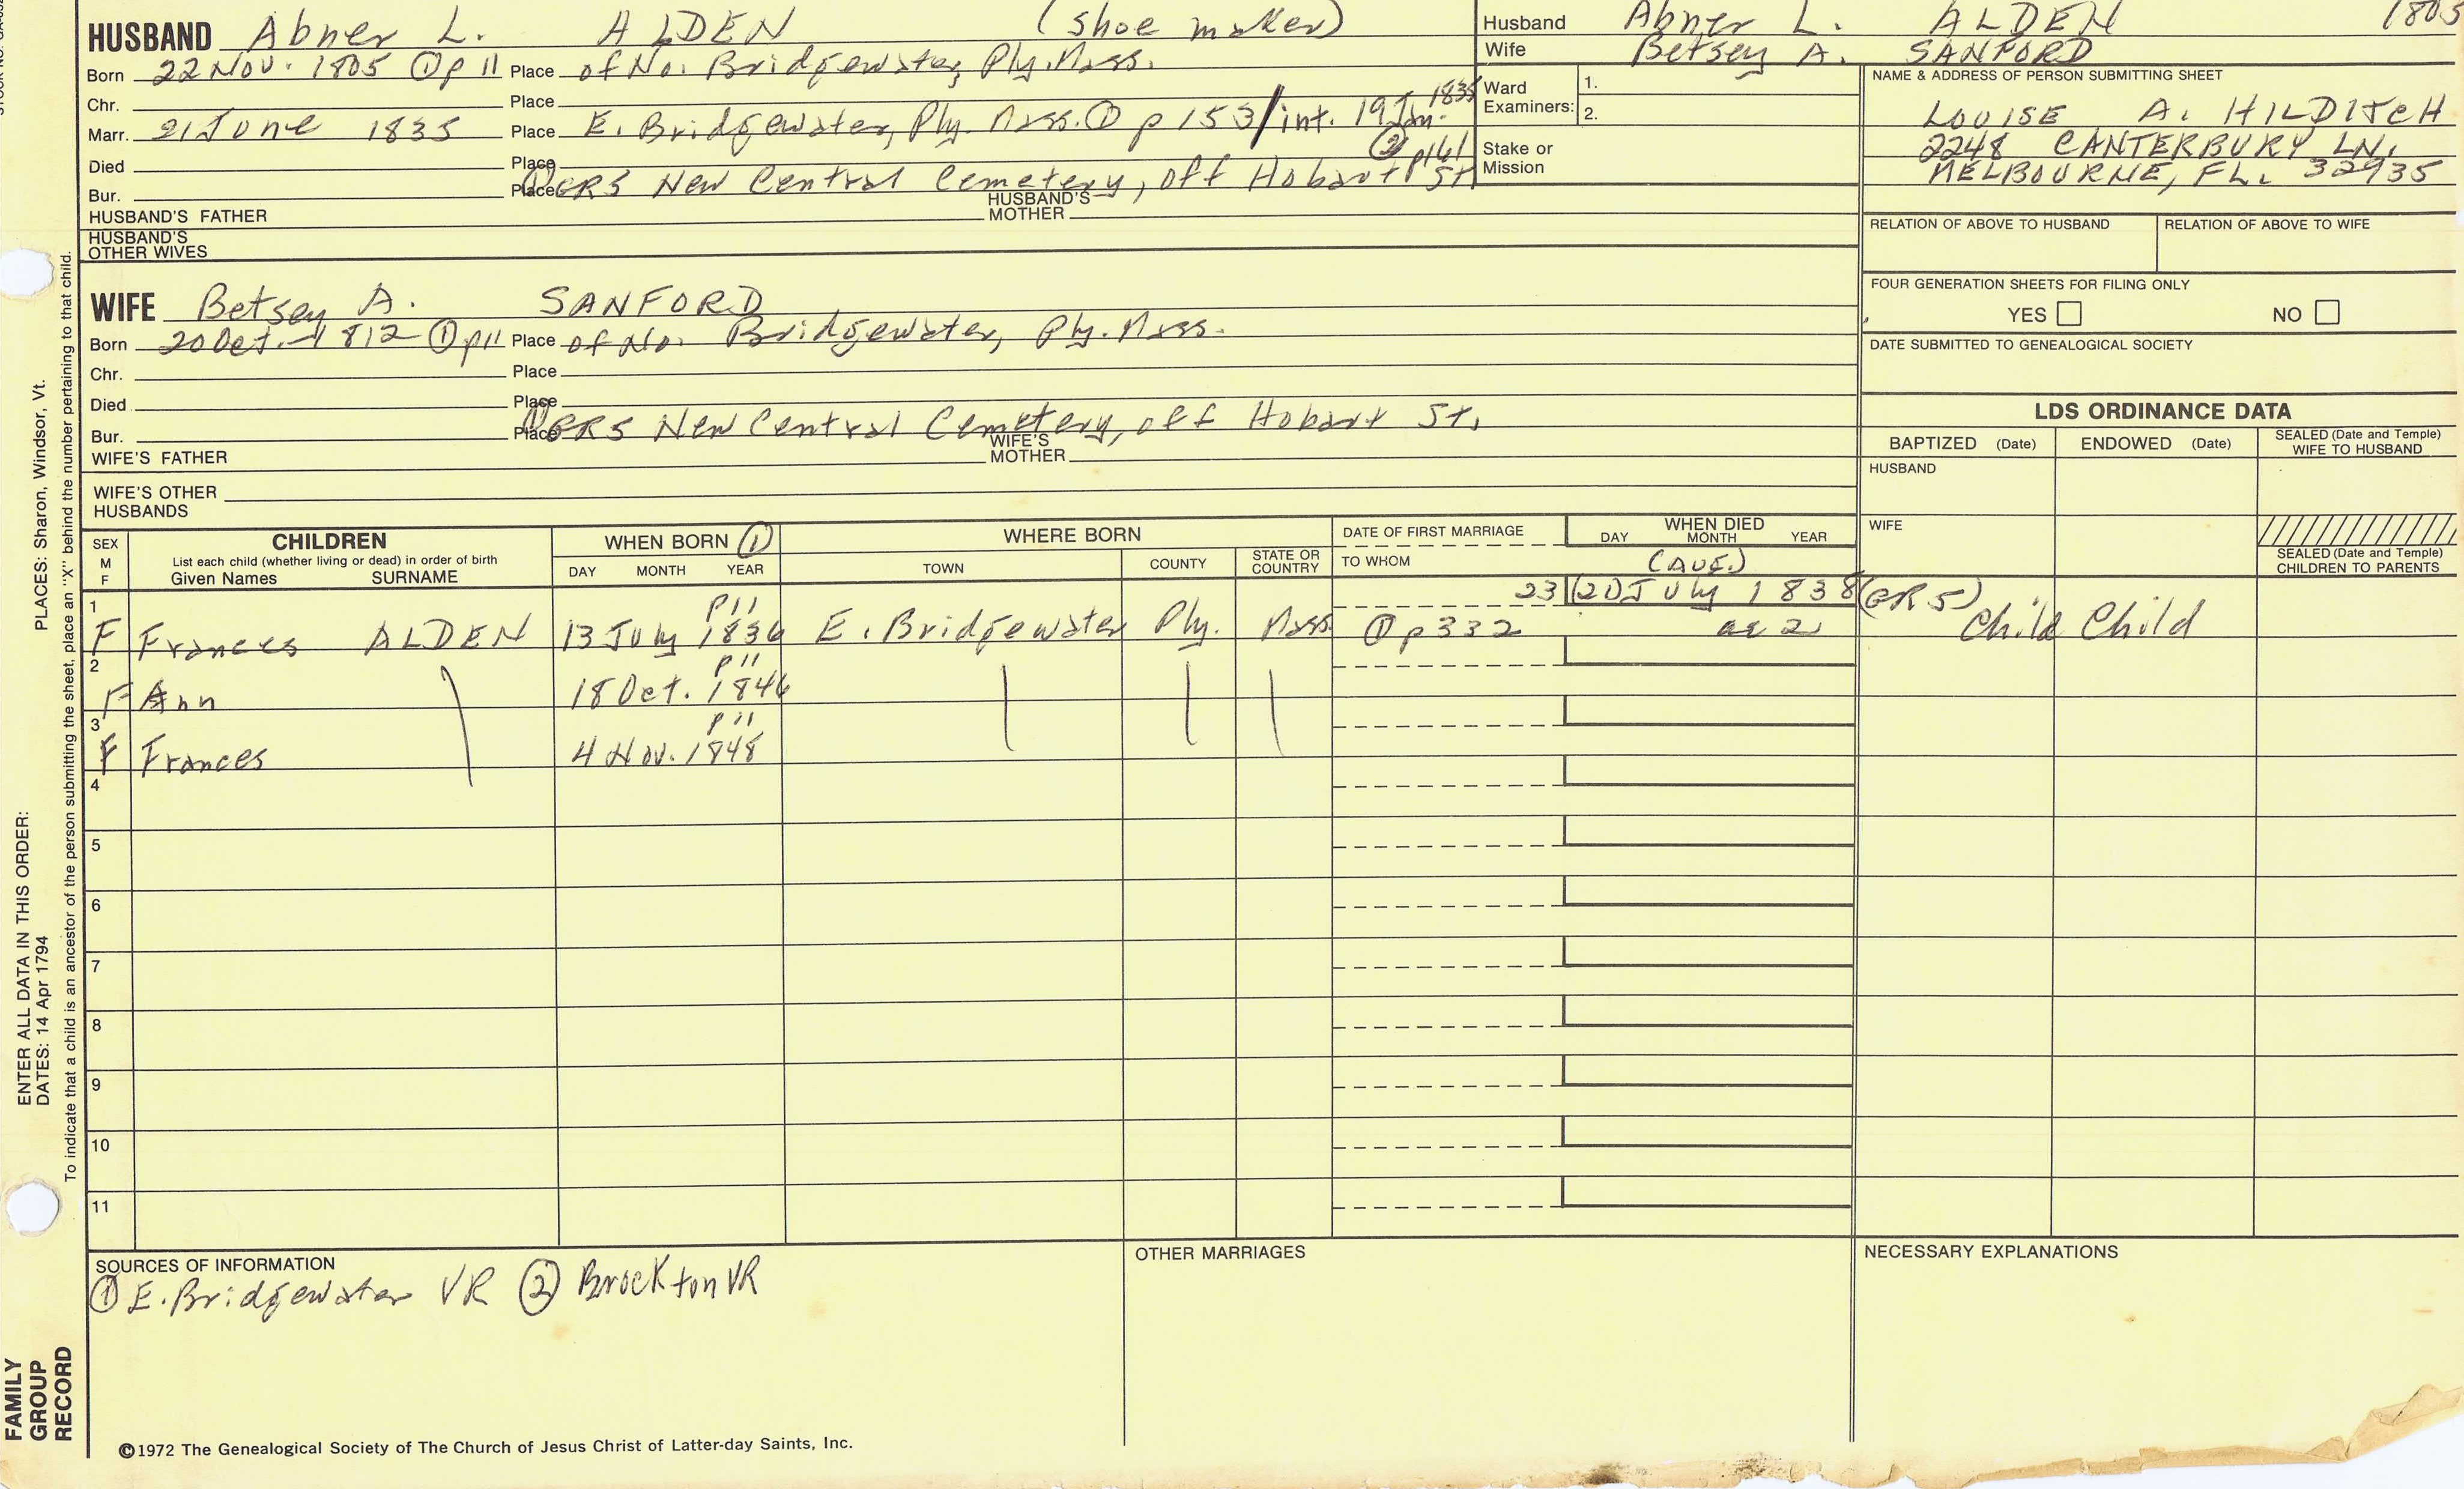 HUSBAND Abner L. ALDEN (shoe maker)
Born 22 Nov. 1805 ① p 11 Place of No. Bridgewater, Ply. Mass.
Chr. Place
Marr. 21 June 1835 Place E. Bridgewater, Ply. Mass. ① p 153/int. 19 Jan. 1835
② p161
Died Place
Bur. Place ① GRS New Central Cemetery, off Hobart St
HUSBAND'S FATHER HUSBAND'S MOTHER
HUSBAND'S OTHER WIVES
WIFE Betsey A. SANFORD
Born 20 Oct. 1812 ① p11 Place of No. Bridgewater, Ply. Mass.
Chr. Place
Died Place
Bur. Place ① GRS New Central Cemetery, off Hobart St.
WIFE'S FATHER WIFE'S MOTHER
WIFE'S OTHER HUSBANDS
Husband Abner L. ALDEN 1805
Wife Betsey A. SANFORD
Ward Examiners: 1.
2.
Stake or Mission
NAME & ADDRESS OF PERSON SUBMITTING SHEET
LOUISE A. HILDITCH
2248 CANTERBURY LN.
MELBOURNE, FL. 32935
RELATION OF ABOVE TO HUSBAND RELATION OF ABOVE TO WIFE
FOUR GENERATION SHEETS FOR FILING ONLY
YES NO
DATE SUBMITTED TO GENEALOGICAL SOCIETY
LDS ORDINANCE DATA
BAPTIZED (Date) ENDOWED (Date) SEALED (Date and Temple) WIFE TO HUSBAND
HUSBAND
WIFE
SEALED (Date and Temple) CHILDREN TO PARENTS
SEX M F CHILDREN WHEN BORN ① WHERE BORN DATE OF FIRST MARRIAGE WHEN DIED
List each child (whether living or dead) in order of birth
Given Names SURNAME DAY MONTH YEAR TOWN COUNTY STATE OR COUNTRY TO WHOM DAY MONTH YEAR
1 p11 23 (2D July 1838 (GR5)
F Frances ALDEN 13 July 1836 E. Bridgewater Ply. Mass ① p332 ae 2 Child Child
2 p11
F Ann 18 Oct. 1846
3 p11
F Frances 4 Nov. 1848
4
5
6
7
8
9
10
11
SOURCES OF INFORMATION
① E. Bridgewater VR ② Brockton VR
OTHER MARRIAGES
NECESSARY EXPLANATIONS
©1972 The Genealogical Society of The Church of Jesus Christ of Latter-day Saints, Inc.
FAMILY GROUP RECORD
ENTER ALL DATA IN THIS ORDER:
DATES: 14 Apr 1794
PLACES: Sharon, Windsor, Vt.
To indicate that a child is an ancestor of the person submitting the sheet, place an "X" behind the number pertaining to that child.